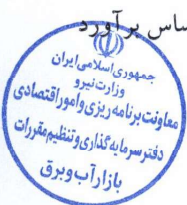 ساس برآورد
جمهوری اسلامی ایران
وزارت نیرو
معاونت برنامه ریزی و امور اقتصادی
دفتر سرمایه گذاری و تنظیم مقررات
بازار آب و برق